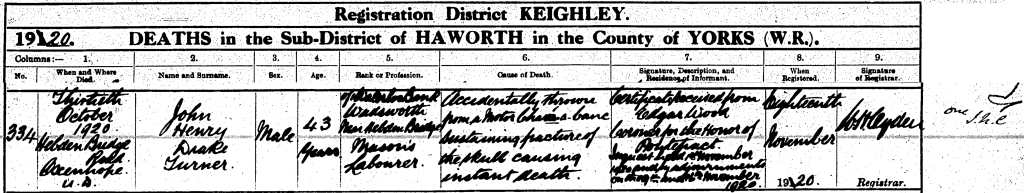 Registration District KEIGHLEY.
1920. DEATHS in the Sub-District of HAWORTH in the County of YORKS (W.R.).
Columns:— 1. 2. 3. 4. 5. 6. 7. 8. 9.
No. When and Where Died. Name and Surname. Sex. Age. Rank or Profession. Cause of Death. Signature, Description, and Residence of Informant. When Registered. Signature of Registrar.
334
Thirtieth
October
1920
Hebden Bridge
Road
Oxenhope
U.D.
John
Henry
Drake
Turner
Male
43
Years
Wadsworth
Near Hebden Bridge
Mason's
Labourer.
Accidentally thrown
from a Motor Char-a-banc
sustaining fracture of
the skull causing
instant death.
Certificate received from
Edgar Wood
Coroner for the Honor of
Pontefract
Inquest held November
and by adjournment
on November
1920.
Eighteenth
November
1920
Registrar.
one